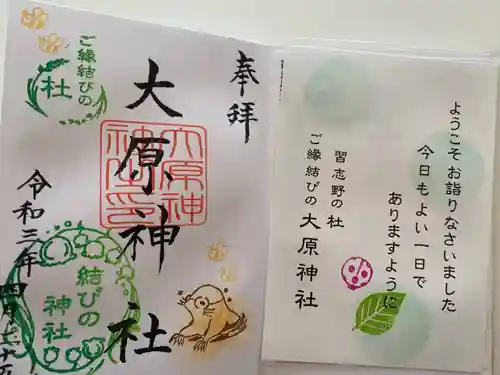 奉拝
大原神社
大原神
神社印
ご縁結びの
杜
結びの
神社
令和三年四月二十五
ようこそお詣りなさいました
今日もよい一日で
ありますように
習志野の杜
ご縁結びの大原神社